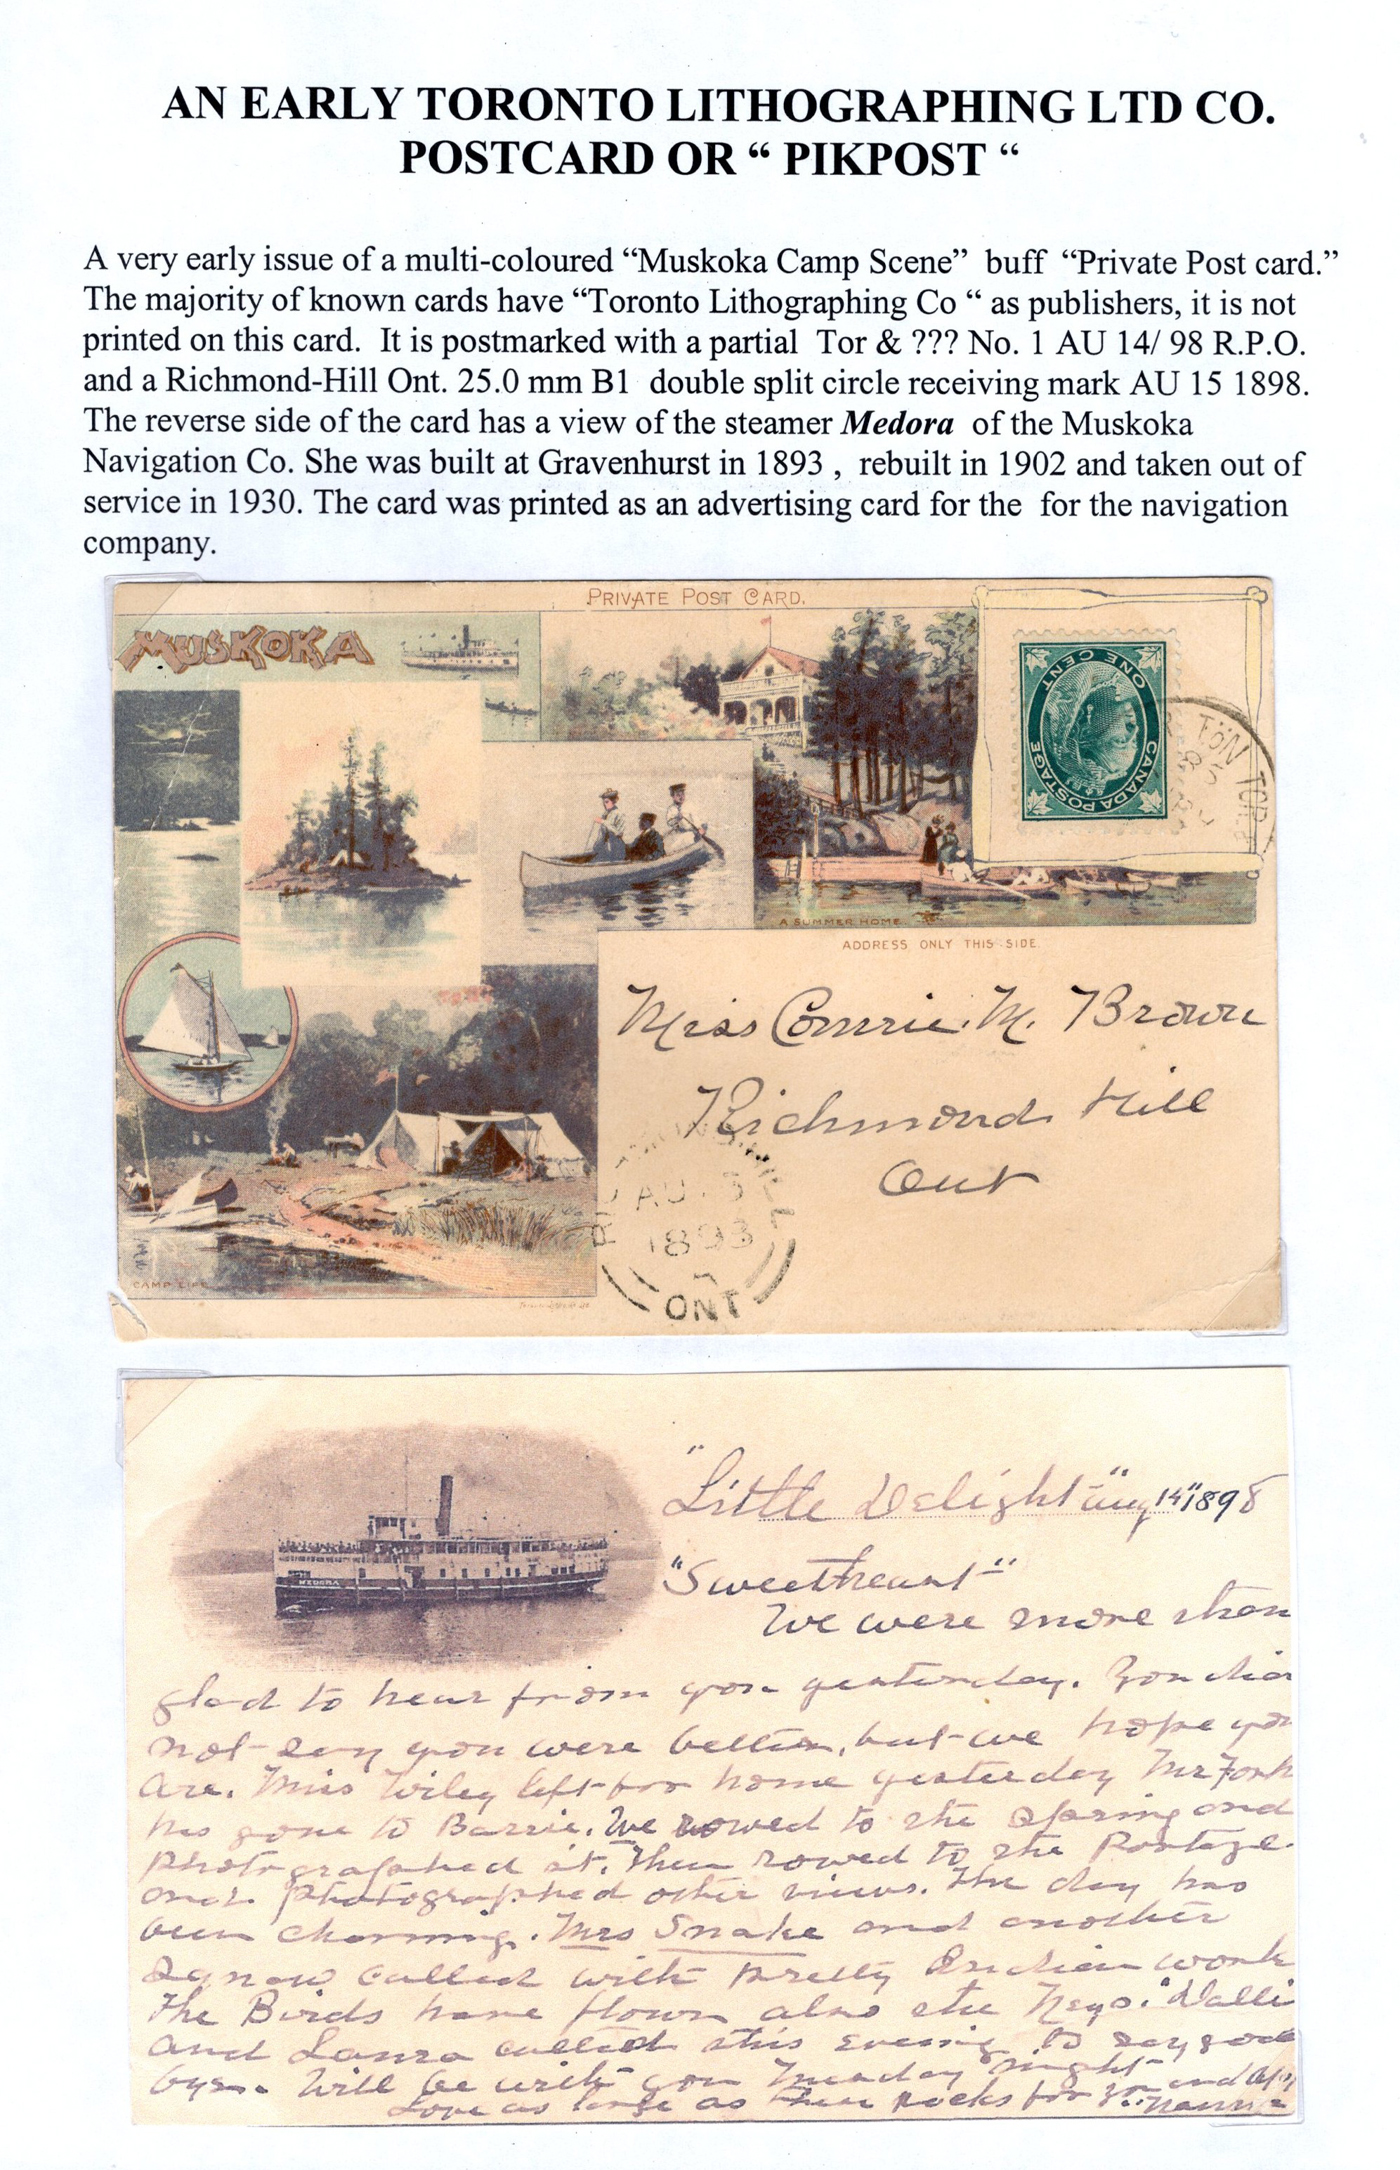 AN EARLY TORONTO LITHOGRAPHING LTD CO.
POSTCARD OR “ PIKPOST “
A very early issue of a multi-coloured “Muskoka Camp Scene” buff “Private Post card.”
The majority of known cards have “Toronto Lithographing Co “ as publishers, it is not
printed on this card. It is postmarked with a partial Tor & ??? No. 1 AU 14/ 98 R.P.O.
and a Richmond-Hill Ont. 25.0 mm B1 double split circle receiving mark AU 15 1898.
The reverse side of the card has a view of the steamer Medora of the Muskoka
Navigation Co. She was built at Gravenhurst in 1893 , rebuilt in 1902 and taken out of
service in 1930. The card was printed as an advertising card for the for the navigation
company.
PRIVATE POST CARD.
MUSKOKA
CANADA POSTAGE
ONE CENT
A SUMMER HOME
ADDRESS ONLY THIS SIDE.
Miss Connie. M. Brown
Richmond Hill
Ont
CAMP LIFE
AU
ONT
MEDORA
"Little Delight" Aug 14" 1898
"Sweetheart"
We were more than
glad to hear from you yesterday. You did
not say you were better, but we hope you
are. Miss Wiley left for home yesterday Mr
has gone to Barrie. We rowed to the Spring and
photographed it. Then rowed to the Portage
and photographed other views. The day has
been charming. Mrs Snake and another
squaw called with pretty Indian work
The Birds have flown also the
and Laura called this evening to say good
bye. Will be with you Tuesday night
Love as large as these Rocks for